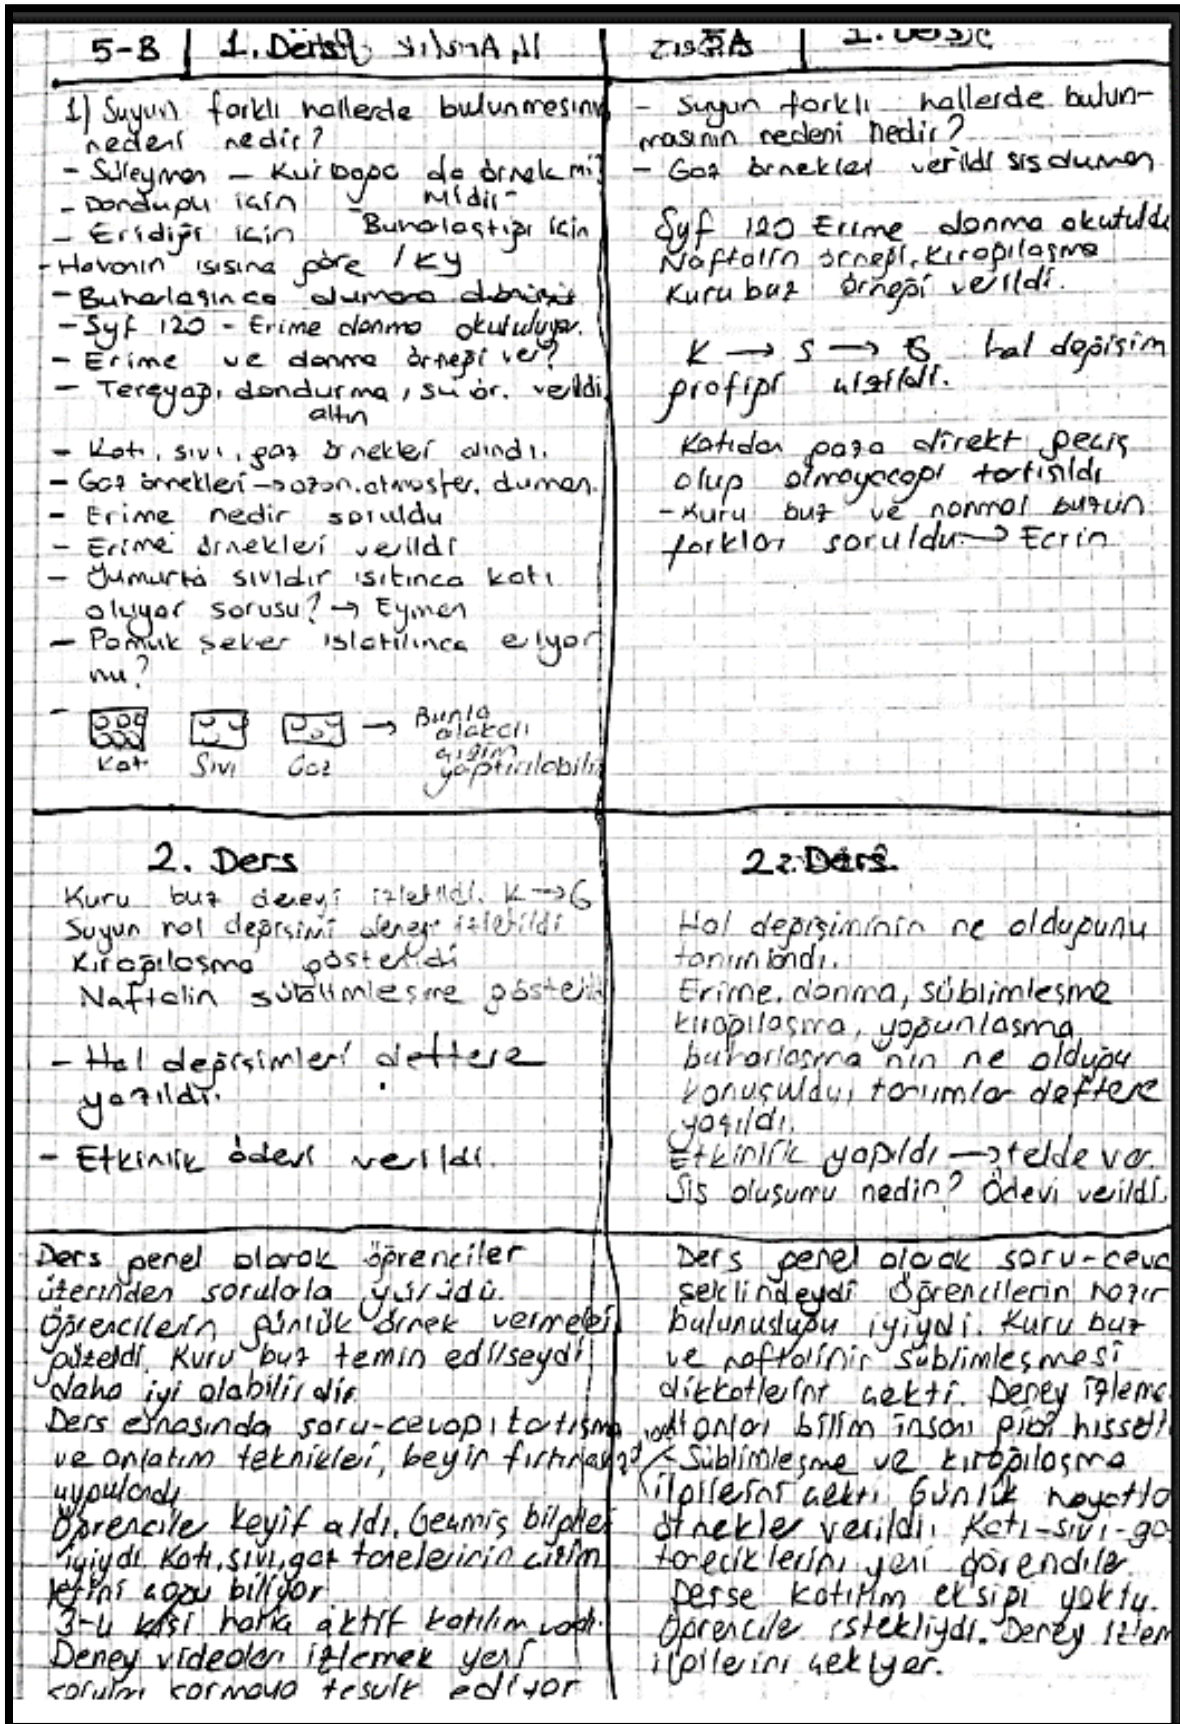 5-B 1. Ders 11 Aralık
1) Suyun farklı hallerde bulunmesinin
nedeni nedir?
- Süleyman - Kurbağa da örnek mi?
midir
- Donduğu için
- Buharlaştığı için
- Eridiği için
- Havanın ısısına göre / KY
- Buharlaşınca dumana
- Syf 120 - Erime donma okutuluyor.
- Erime ve donma örneği ver?
- Tereyağı, dondurma, su ör. verildi
altın
- Katı, sıvı, gaz örnekleri alındı.
- Gaz örnekleri → ozon, atmosfer, duman.
- Erime nedir soruldu
- Erime örnekleri verildi
- Yumurta sıvıdır ısıtınca katı
oluyor sorusu? → Eymen
- Pamuk şeker ıslatılınca eriyor
mu?
-
Katı Sıvı Gaz → Bunla
alakalı
çizim
yaptırılabilir
2. Ders
Kuru buz deneyi izletildi. K → G
Suyun hal değişimi deneyi izletildi
Kırağılaşma gösterildi
Naftalin süblimleşme gösterildi
- Hal değişimleri deftere
yazıldı.
- Etkinlik ödevi verildi.
Ders genel olarak öğrenciler
üzerinden sorularla yürüdü.
Öğrencilerin günlük örnek vermeleri
güzeldi. Kuru buz temin edilseydi
daha iyi olabilirdi.
Ders esnasında soru-cevap, tartışma
ve anlatım teknikleri, beyin fırtınası
uygulandı
Öğrenciler keyif aldı. Geçmiş bilgileri
iyiydi. Katı, sıvı, gaz tanelerinin çizim
lerini çoğu biliyor
3-4 kişi hariç aktif katılım vardı.
Deney videoları izlemek yeni
soruları sormaya teşvik ediyor
1. Ders
- Suyun farklı hallerde bulun-
masının nedeni nedir?
- Gaz örnekleri verildi sis duman
Syf 120 Erime donma okutuldu
Naftalin örneği, kırağılaşma
Kuru buz örneği verildi.
K → S → G hal değişim
grafiği çizildi.
Katıdan gaza direkt geçiş
olup olmayacağı tartışıldı
- Kuru buz ve normal buzun
farkları soruldu. → Ecrin
2. Ders
Hal değişiminin ne olduğunu
tanımlandı.
Erime, donma, süblimleşme
kırağılaşma, yoğunlaşma
buharlaşma'nın ne olduğu
konuşuldu, tanımlar deftere
yazıldı.
Etkinlik yapıldı → telde var.
Sis oluşumu nedir? Ödevi verildi.
Ders genel olarak soru-ceva
şeklindeydi Öğrencilerin hazır
bulunuşluğu iyiydi. Kuru buz
ve naftalinin süblimleşmesi
dikkatlerini çekti. Deney izleme
onları bilim insanı gibi hisset
- Süblimleşme ve kırağılaşma
ilgilerini çekti Günlük hayatla
örnekler verildi. Katı-sıvı-ga
taneciklerini yeni öğrendiler.
Derse katılım eksiği yoktu.
Öğrenciler istekliydi. Deney izlem
ilgilerini çekiyor.